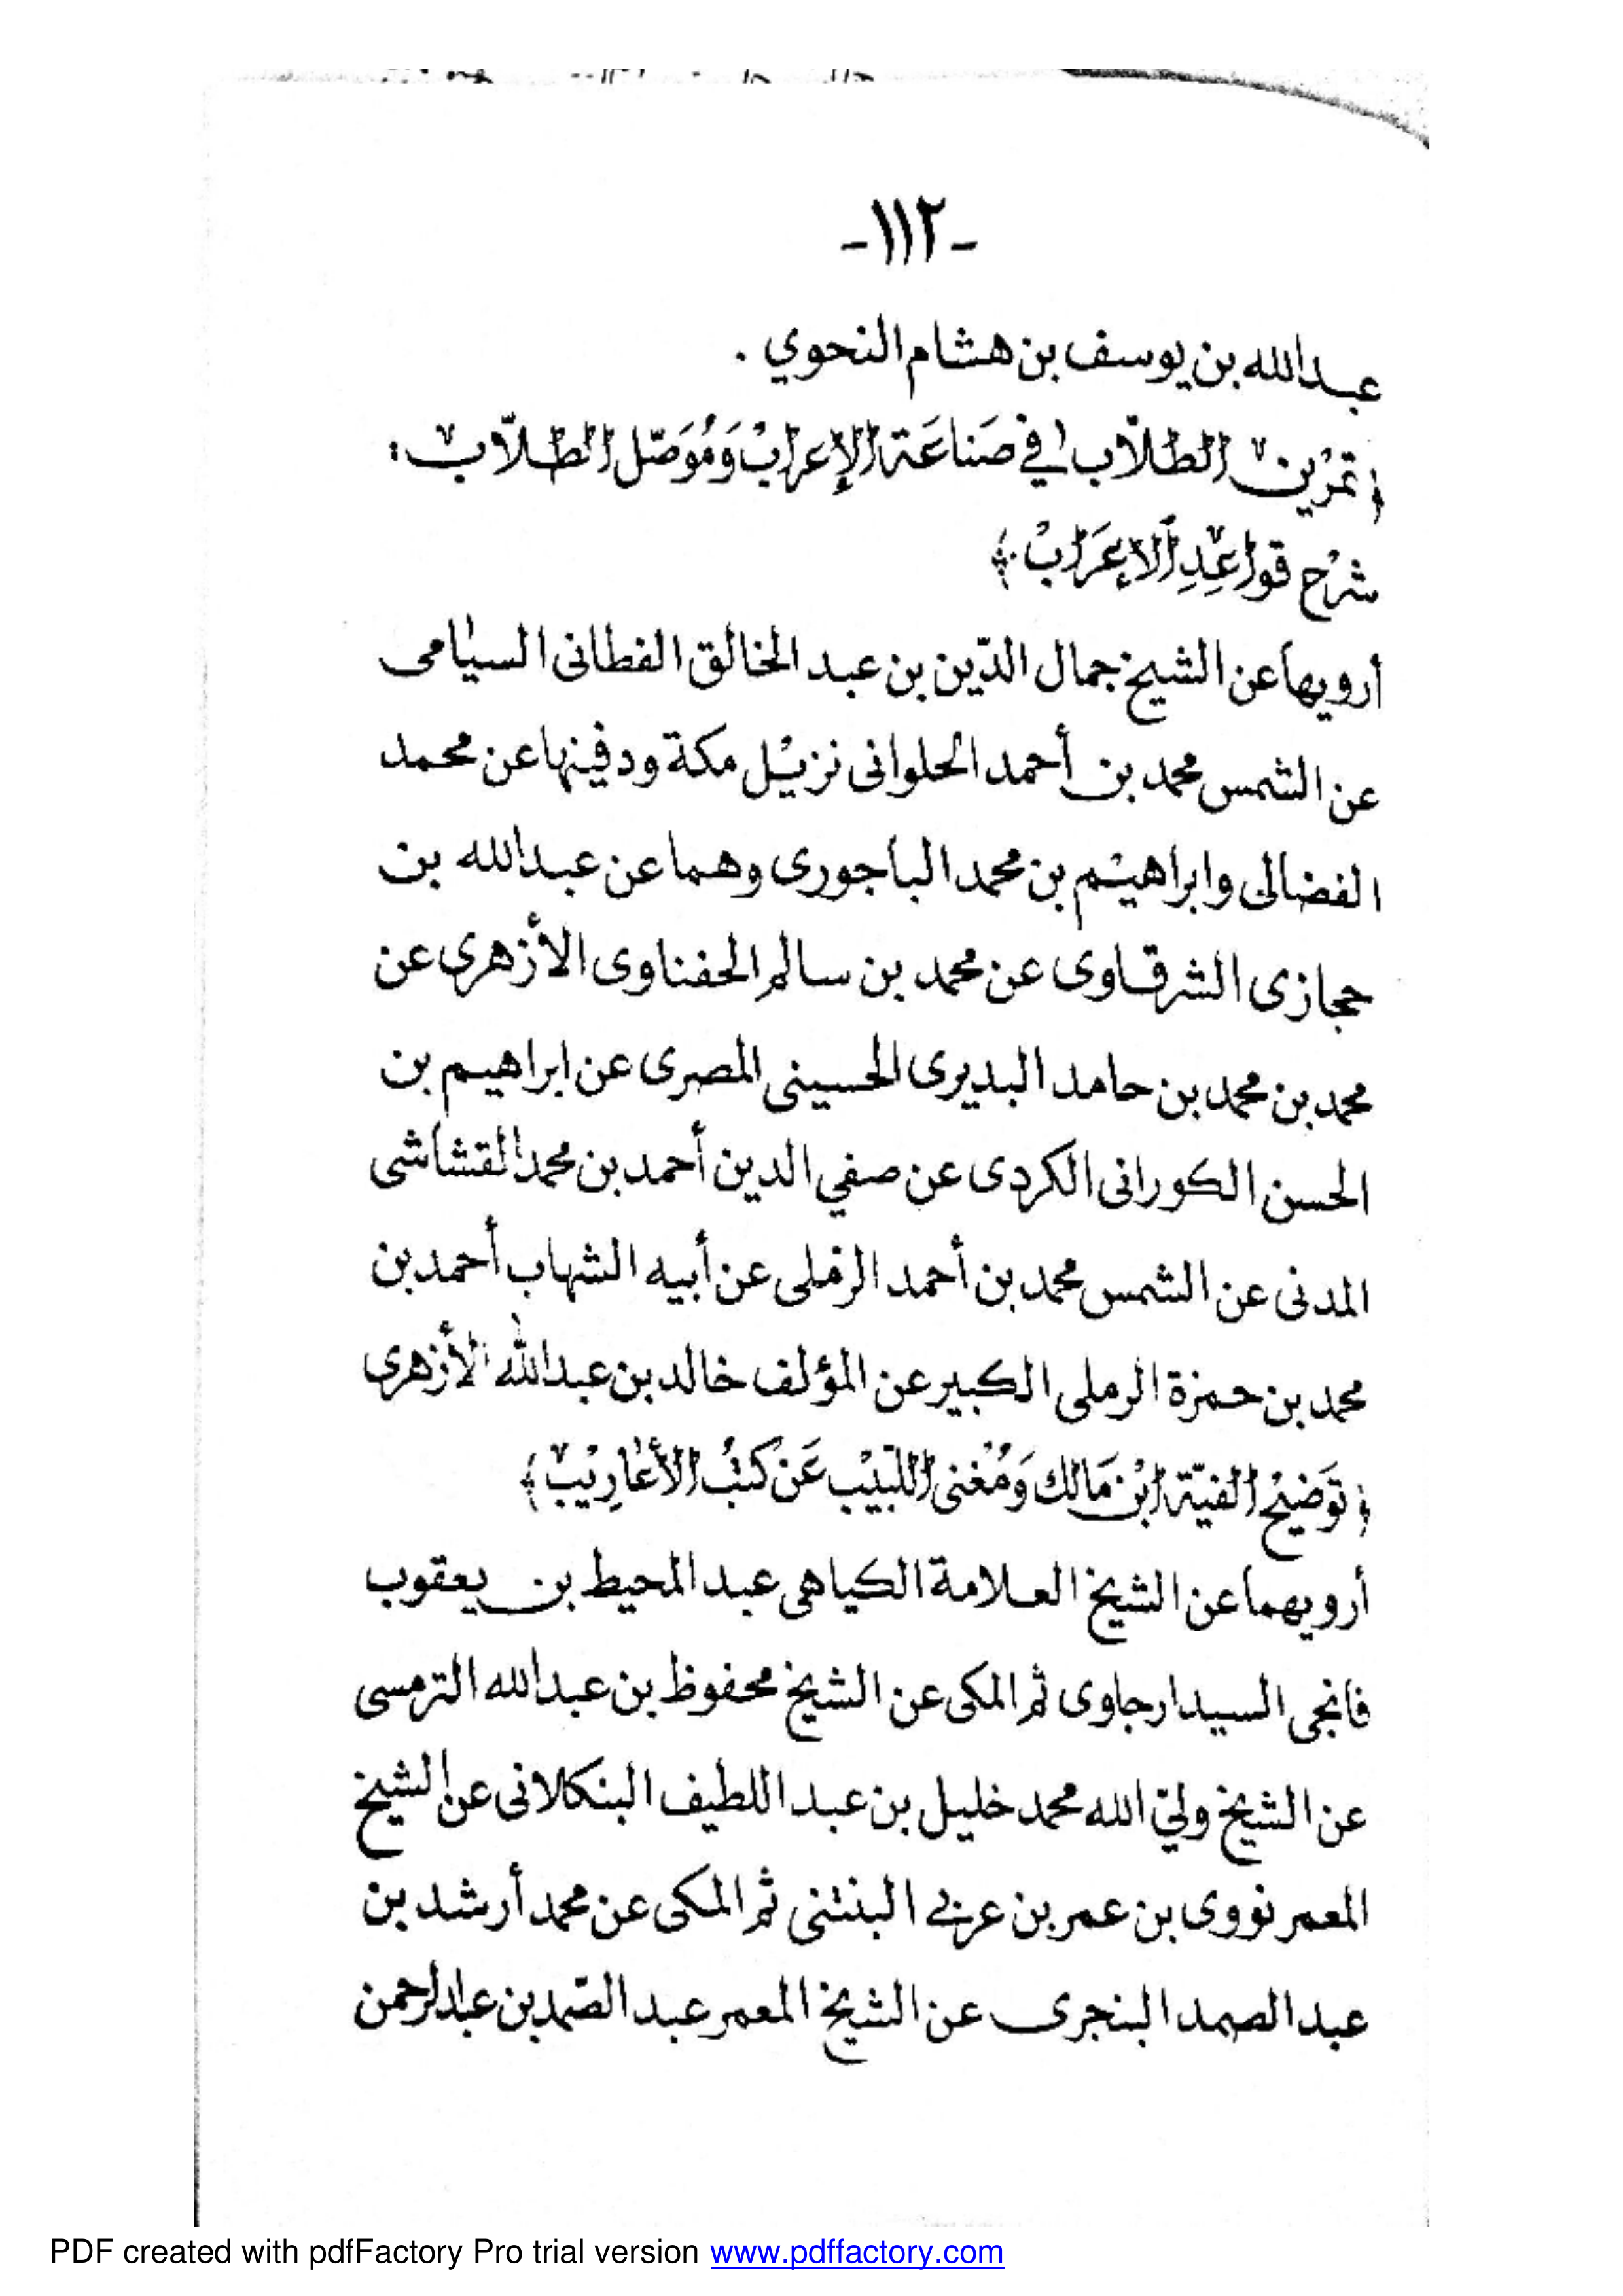 -١١٢-
عبدالله بن يوسف بن هشام النحوي .
﴿ تمرْين الطلّاب في صَناعَة الإعرابْ وَمُوَصّل الطلّاب :
شرْح قواعِدِ اَلإعَرَابْ ﴾
أرويها عن الشيخ جمال الدّين بن عبد الخالق الفطانى السيٰامى
عن الشمس محمد بن أحمد الحلوانى نزيْل مكة ودفينها عن محمد
الفضالى وابراهيْم بن محمد الباجورى وهما عن عبدالله بن
حجازى الشرقاوى عن محمد بن سالم الحفناوى الأزهرى عن
محمد بن محمد بن حامد البديرى الحسينى المصرى عن ابراهيم بن
الحسن الكورانى الكردى عن صفي الدين أحمد بن محمد القشاشى
المدنى عن الشمس محمد بن أحمد الرفلى عن أبيه الشهاب أحمد بن
محمد بن حمزة الرملى الكبير عن المؤلف خالد بن عبدالله الأزهرى
﴿ توَضيْح الفيّة ابْن مَالك وَمُغنى اللبَيْب عَنْ كتبُ الأعٰارِيْبْ ﴾
أرويهما عن الشيخ العلامة الكياهى عبد المحيط بن يعقوب
فانجى السيدارجاوى ثم المكى عن الشيخ محفوظ بن عبدالله الترمسى
عن الشيخ وليّ الله محمد خليل بن عبد اللطيف البنكلانى عن الشيخ
المعمر نووى بن عمر بن عربي البنتنى ثم المكى عن محمد أرشد بن
عبد الصمد البنجرى عن الشيخ المعمر عبد الصّمد بن عبدالرحمن
PDF created with pdfFactory Pro trial version www.pdffactory.com